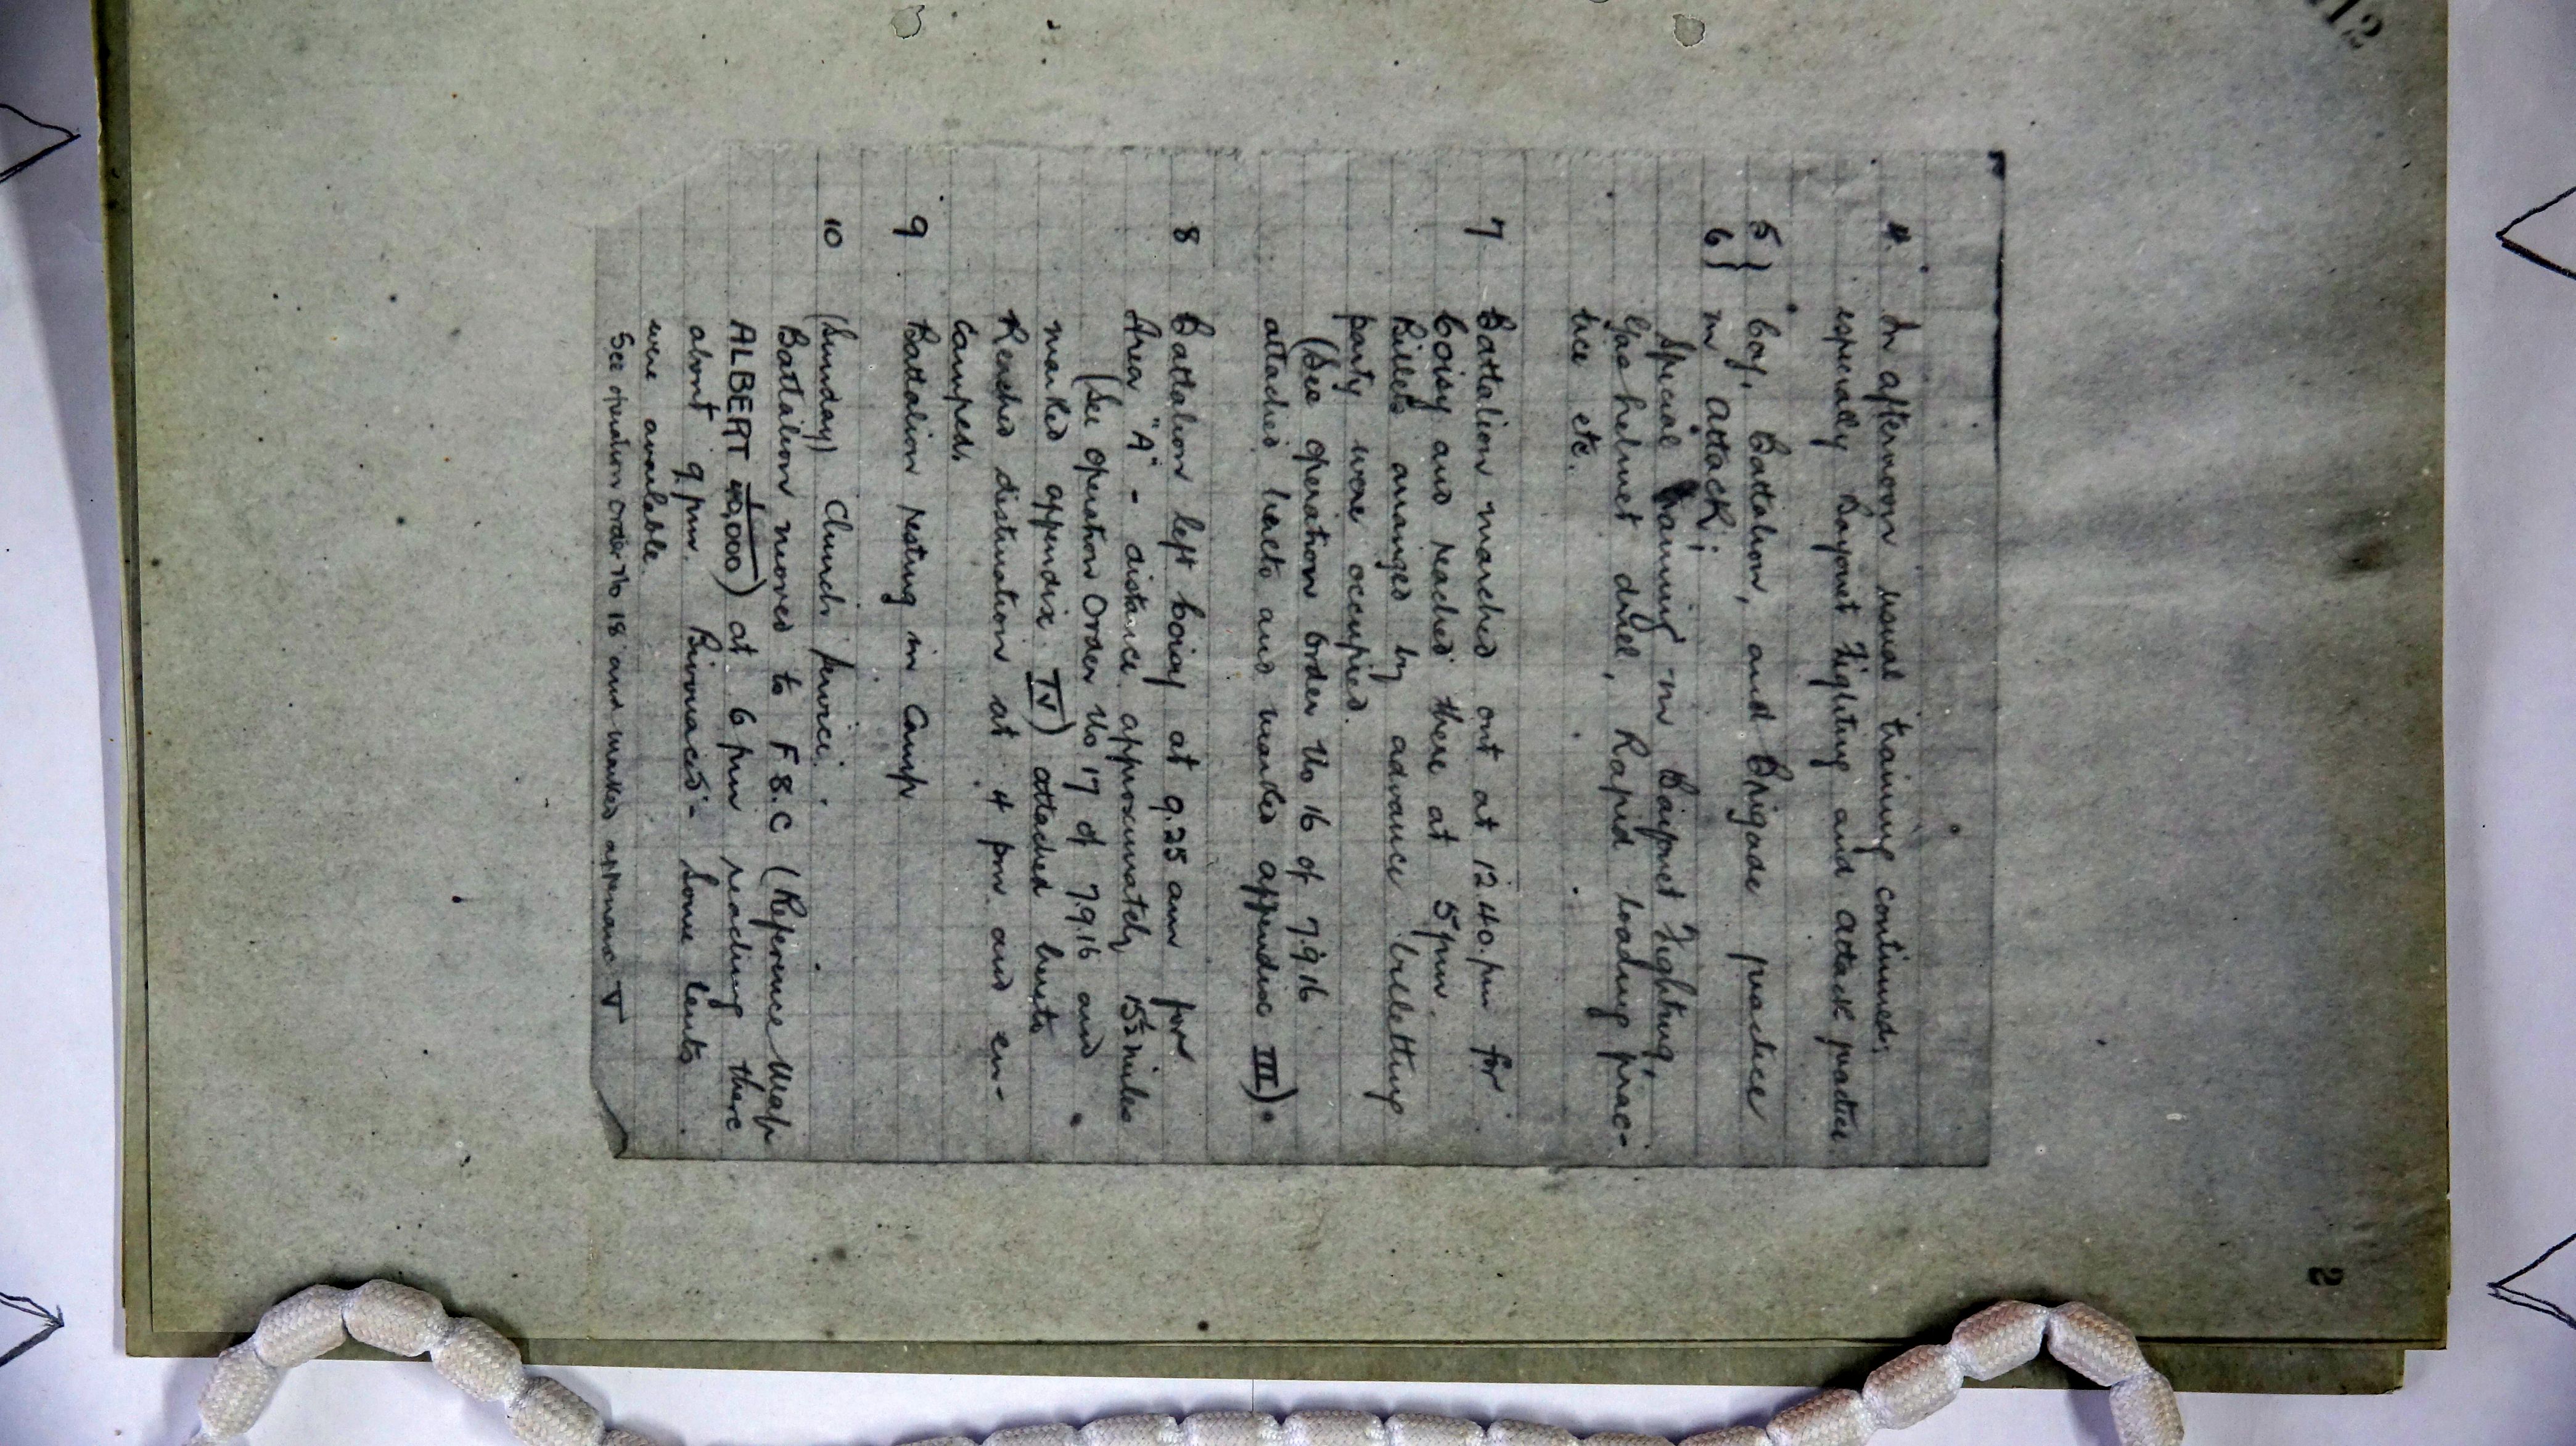 112
2
4. In afternoon usual training continued;
especially Bayonet Fighting and attack practice.
5} Coy, Battalion, and Brigade practice
6} in attack;
Special training in Baiyonet Fighting,
Gas helmet drill, Rapid loading prac-
tice etc.
7 Battalion marched out at 12.40.pm for
Coisy and reached there at 5pm.
Billets arranged by advance billetting
party were occupied.
(See operation Order No 16 of 7.9.16
attached hereto and marked appendix III).
8 Battalion left Coisy at 9.25 am for
Area "A" - distance approximately 15½ miles
(See operation Order No 17 of 7.9.16 and
marked appendix IV) attached hereto
Reached distination at 4 pm and en-
Camped.
9 Battalion resting in Camp
10 (Sunday) Church Service.
Battalion moved to F.8.C (Reference Map
ALBERT 1/40,000) at 6 pm reaching there
about 9.pm. Bivouaced - Some tents
were available.
See operation Order No 18 and marked appendix V